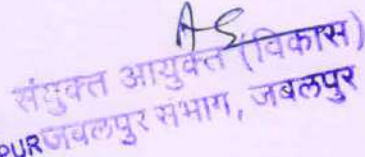 संयुक्त आयुक्त (विकास)
PURजबलपुर संभाग, जबलपुर